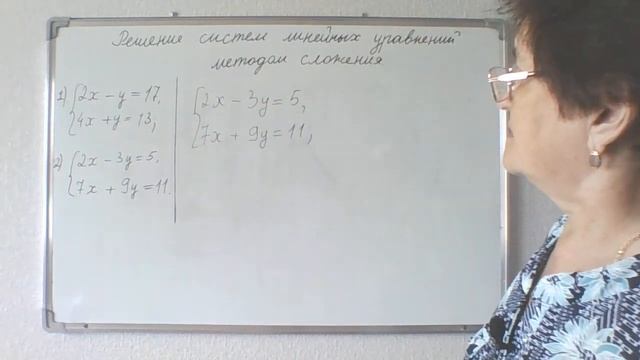 Решение систем линейных уравнений
методом сложения
1) {2x - y = 17,
4x + y = 13;
2) {2x - 3y = 5.
7x + 9y = 11.
{2x - 3y = 5,
7x + 9y = 11;